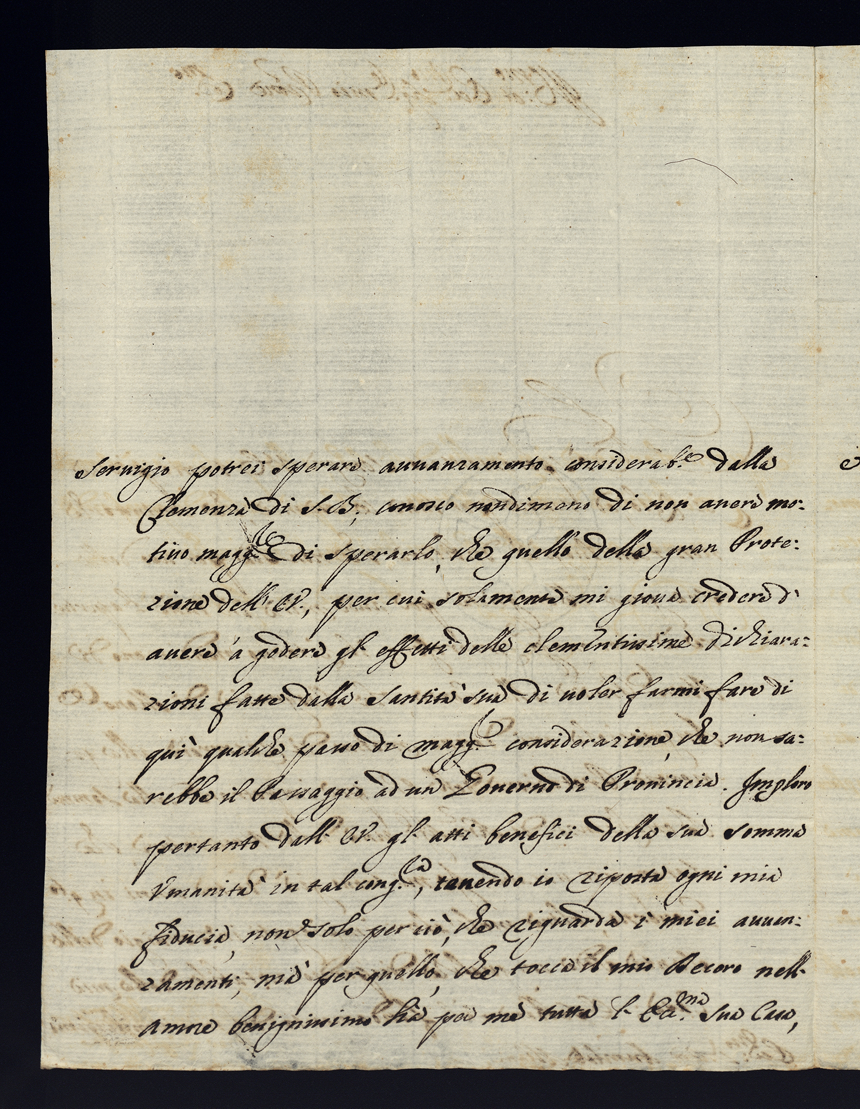 servigio potrei sperare avvanzamento considerab.e dalla
Clemenza di S. B., conosco nondimeno di non avere mo:
tivo magg.re di sperarlo, che quello della gran Prote:
zione dell' E.V., per cui solamente mi giova credere d'
avere à godere gl' effetti delle clementissime dichiara:
zioni fatte dalla Santità sua di voler farmi fare di
quì qualche passo di magg.re considerazione, che non sa:
rebbe il Passaggio ad un Governo di Provincia. Imploro
pertanto dall' E.V. gl' atti benefici della sua somma
Umanità in tal cong.ra, avendo io riposta ogni mia
fiducia, non solo per ciò, che riguarda i miei avvan:
zamenti, mà per quello, che tocca il mio decoro nell'
amore benignissimo hà per me tutta l' Ecc.ma sua Casa,